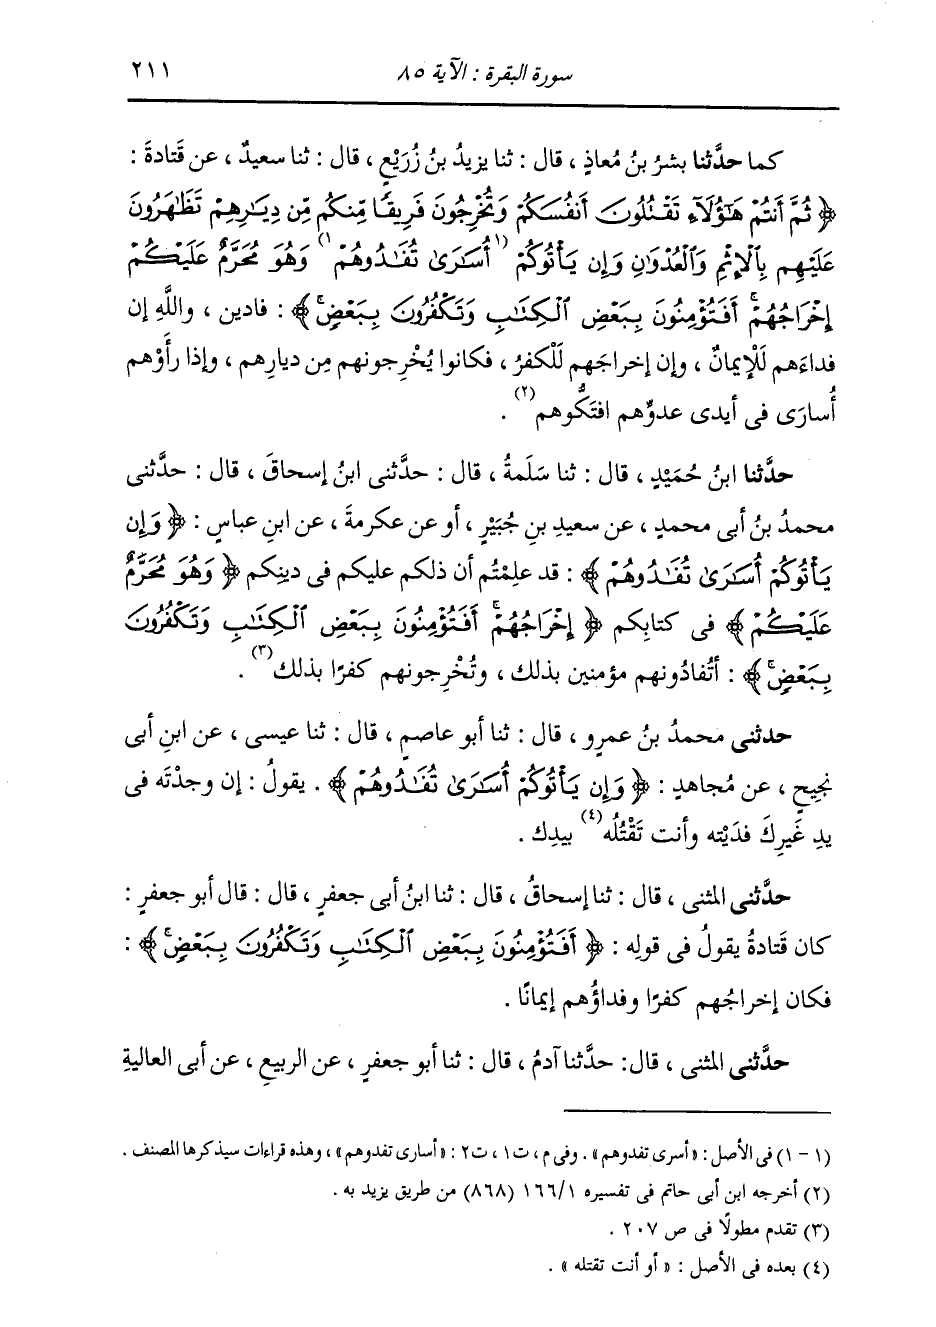 سورة البقرة : الآية ٨٥ ٢١١
كما حدَّثنا بشرُ بنُ مُعاذٍ ، قال : ثنا يزيدُ بنُ زُرَيْعٍ ، قال : ثنا سعيدٌ ، عن قَتادةَ :
﴿ ثُمَّ أَنتُمْ هَٰٓؤُلَآءِ تَقْتُلُونَ أَنفُسَكُمْ وَتُخْرِجُونَ فَرِيقًا مِّنكُم مِّن دِيَٰرِهِمْ تَظَٰهَرُونَ
عَلَيْهِم بِٱلْإِثْمِ وَٱلْعُدْوَٰنِ وَإِن يَأْتُوكُمْ (١) أُسَٰرَىٰ تُفَٰدُوهُمْ (١) وَهُوَ مُحَرَّمٌ عَلَيْكُمْ
إِخْرَاجُهُمْ ۚ أَفَتُؤْمِنُونَ بِبَعْضِ ٱلْكِتَٰبِ وَتَكْفُرُونَ بِبَعْضٍ ۚ ﴾ : فادين ، واللَّهِ إن
فداءَهم لَلْإيمانٌ ، وإن إخراجَهم لَلْكفرُ ، فكانوا يُخْرِجونهم مِن ديارِهم ، وإذا رأَوْهم
أُسارَى فى أيدى عدوِّهم افتَكُّوهم (٢) .
حدَّثنا ابنُ حُمَيْدٍ ، قال : ثنا سَلَمةُ ، قال : حدَّثنى ابنُ إسحاقَ ، قال : حدَّثنى
محمدُ بنُ أبى محمدٍ ، عن سعيدِ بنِ جُبَيْرٍ ، أو عن عكرمةَ ، عن ابنِ عباسٍ : ﴿ وَإِن
يَأْتُوكُمْ أُسَٰرَىٰ تُفَٰدُوهُمْ ﴾ : قد علِمْتُم أن ذلكم عليكم فى دينِكم ﴿ وَهُوَ مُحَرَّمٌ
عَلَيْكُمْ ﴾ فى كتابِكم ﴿ إِخْرَاجُهُمْ ۚ أَفَتُؤْمِنُونَ بِبَعْضِ ٱلْكِتَٰبِ وَتَكْفُرُونَ
بِبَعْضٍ ۚ ﴾ : أتُفادُونهم مؤمنين بذلك ، وتُخْرِجونهم كفرًا بذلك (٣) .
حدثنى محمدُ بنُ عمرٍو ، قال : ثنا أبو عاصمٍ ، قال : ثنا عيسى ، عن ابنِ أبى
نَجِيحٍ ، عن مُجاهدٍ : ﴿ وَإِن يَأْتُوكُمْ أُسَٰرَىٰ تُفَٰدُوهُمْ ﴾ . يقولُ : إن وجدْتَه فى
يدِ غَيرِكَ فدَيْته وأنت تَقْتُلُه (٤) بيدِك .
حدَّثنى المثنى ، قال : ثنا إسحاقُ ، قال : ثنا ابنُ أبى جعفرٍ ، قال : قال أبو جعفرٍ :
كان قَتادةُ يقولُ فى قولِه : ﴿ أَفَتُؤْمِنُونَ بِبَعْضِ ٱلْكِتَٰبِ وَتَكْفُرُونَ بِبَعْضٍ ۚ ﴾ :
فكان إخراجُهم كفرًا وفداؤُهم إيمانًا .
حدَّثنى المثنى ، قال : حدَّثنا آدمُ ، قال : ثنا أبو جعفرٍ ، عن الربيعِ ، عن أبى العاليةِ
(١ - ١) فى الأصل : « أسرى تفدوهم » . وفى م ، ت١ ، ت٢ : « أسارى تفدوهم » ، وهذه قراءات سيذكرها المصنف .
(٢) أخرجه ابن أبى حاتم فى تفسيره ١/ ١٦٦ (٨٦٨) من طريق يزيد به .
(٣) تقدم مطولًا فى ص ٢٠٧ .
(٤) بعده فى الأصل : « أو أنت تقتله » .